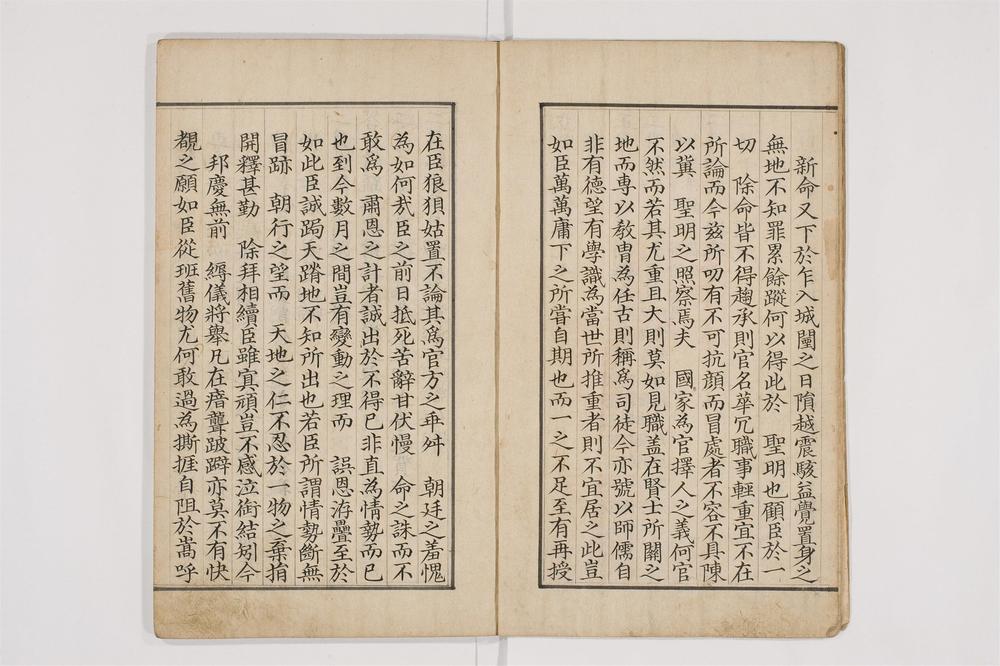 新命又下於乍入城闉之日隕越震駭益覺置身之
無地不知罪累餘蹤何以得此於 聖明也顧臣於一
切 除命皆不得趨承則官名華冗職事輕重宜不在
所論而今兹所叨有不可抗顔而冒處者不容不具陳
以冀 聖明之照察焉夫 國家為官擇人之義何官
不然而若其尤重且大則莫如見職盖在賢士所關之
地而専以教胄為任古則稱爲司徒今亦號以師儒自
非有德望有學識為當世所推重者則不宜居之此豈
如臣萬萬庸下之所嘗自期也而一之不足至有再授
在臣狼狽姑置不論其爲官方之乖舛 朝廷之羞愧
為如何㢤臣之前日抵死苦辭甘伏慢 命之誅而不
敢爲 肅恩之計者誠出於不得已非直為情勢而已
也到今數月之間豈有變動之理而 誤恩洊疊至於
如此臣誠跼天蹐地不知所出也若臣所謂情勢斷無
冒跡 朝行之望而 天地之仁不忍於一物之棄捐
開釋甚勤 除拜相續臣雖冥頑豈不感泣銜結矧今
邦慶無前 縟儀將舉凡在瘖聾跛躃亦莫不有快
覩之願如臣從班舊物尤何敢過為撕捱自阻於嵩呼